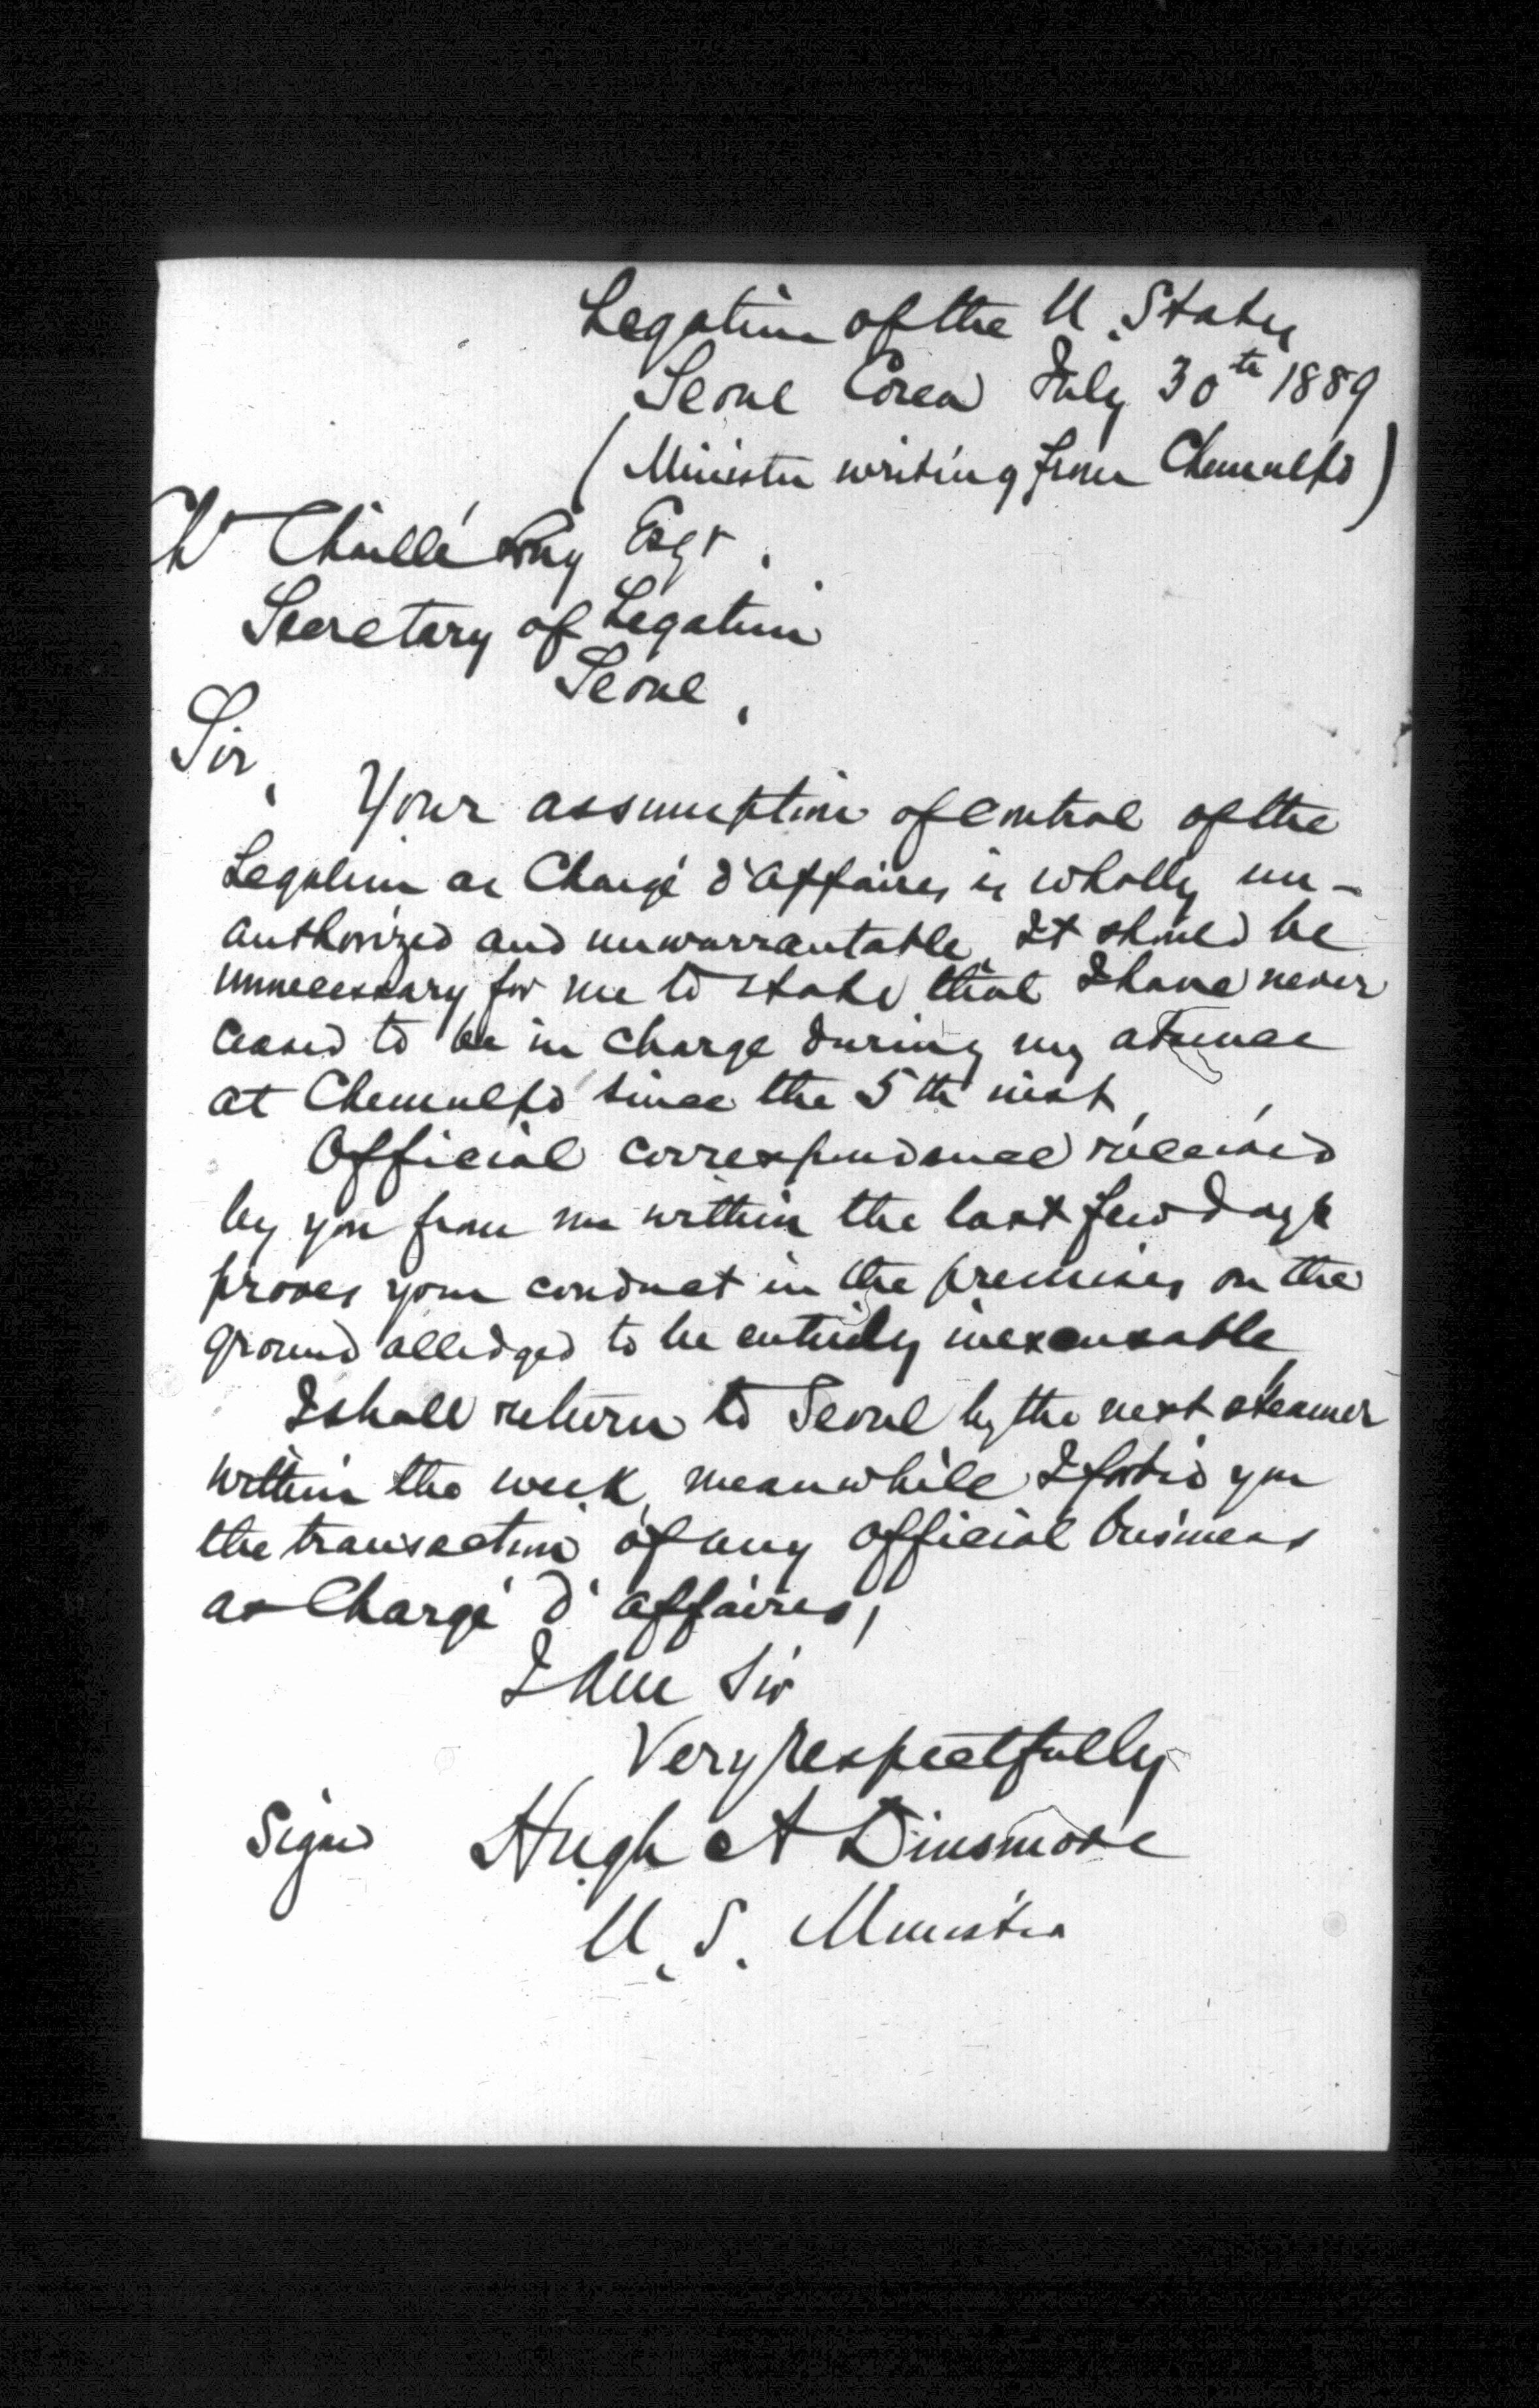 Legation of the U. States
Seoul Corea July 30th 1889
(Minister writing from Chemulpo)
Ch Chaillé Long Esqr.
Secretary of Legation
Seoul,
Sir,
Your assumption of control of the
Legation as Chargé d'Affaires is wholly un-
authorized and unwarrantable, It should be
unnecessary for me to state that I have never
ceased to be in charge during my absence
at Chemulpo since the 5th inst,
Official correspondence received
by you from me within the last few days
proves your conduct in the premises on the
ground alledged to be entirely inexcusable,
I shall return to Seoul by the next steamer
within the week, meanwhile I forbid you
the transaction of any official business
as Chargé d'affaires,
I am Sir
Very respectfully
Signed Hugh A Dinsmore
U. S. Minister